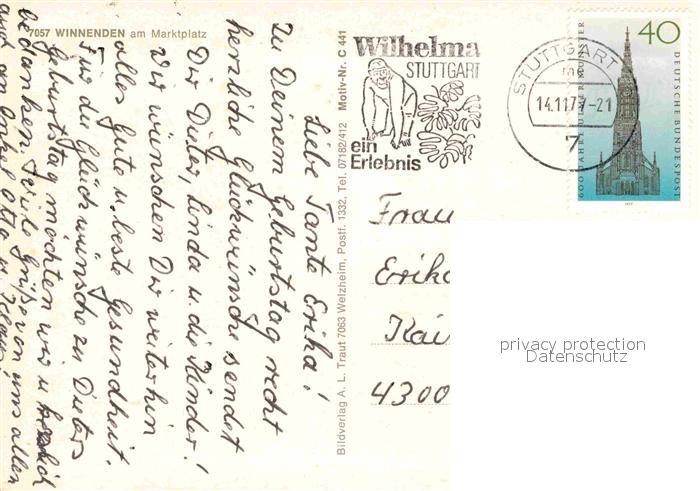 7057 WINNENDEN am Marktplatz
Liebe Tante Erika!
Zu Deinem Geburtstag recht
herzliche Glückwünsche sendet
Dir Dieter, Linda u. die Kinder!
Wir wünschen Dir weiterhin
alles Gute u. beste Gesundheit.
Für die Glückwünsche zu Dieters
Geburtstag möchten wir u. herzlich
bedanken. Viele Grüße von uns allen
auch an Onkel Otto u.
Bildverlag A. L. Traut 7063 Welzheim, Postf. 1332, Tel. 07182/412 Motiv-Nr. C 441
Wilhelma
STUTTGART
ein
Erlebnis
STUTTGART
14.11.77-21
7
40
600 JAHRE ULMER MÜNSTER
DEUTSCHE BUNDESPOST
1977
Frau
Erika
Kai
4300
privacy protection
Datenschutz